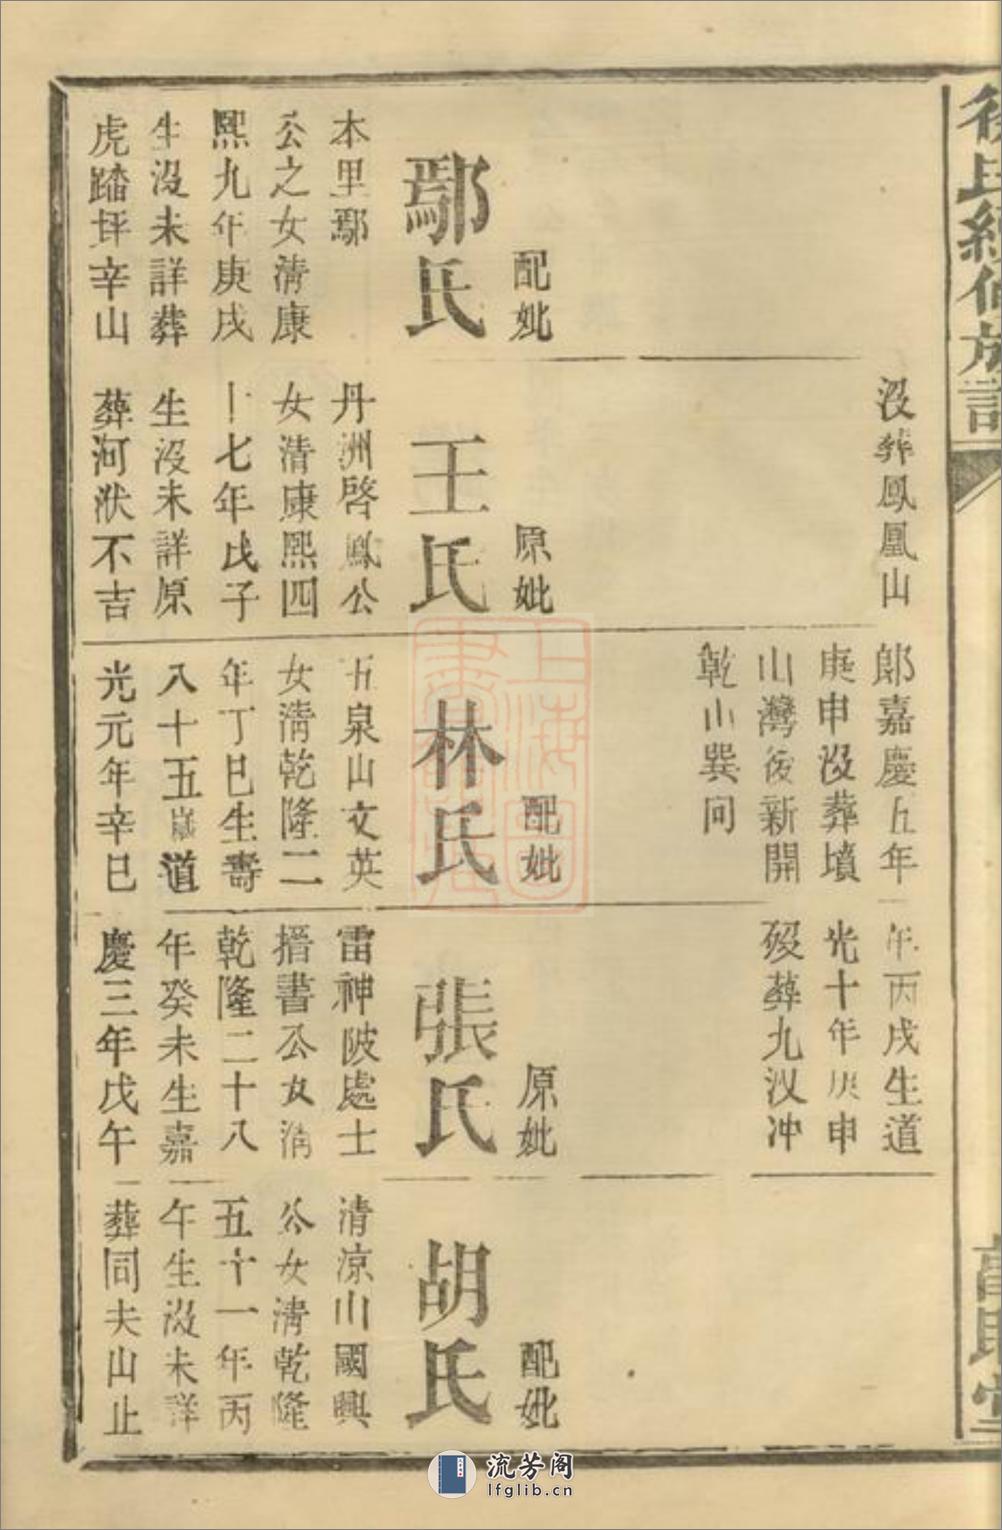 配妣
鄢氏
本里鄢
公之女清康
熙九年庚戌
生沒未詳葬
虎踏坪辛山
沒葬鳳凰山
原妣
王氏
丹洲啓鳳公
女清康熙四
十七年戊子
生沒未詳原
葬河洑不吉
郎嘉慶五年
庚申沒葬墳
山灣後新開
乾山巽向
配妣
林氏
五泉山文英
女清乾隆二
年丁巳生壽
八十五歲道
光元年辛巳
年丙戌生道
光十年庚申
歿葬九汊冲
原妣
張氏
雷神陂處士
搢書公女清
乾隆二十八
年癸未生嘉
慶三年戊午
配妣
胡氏
清凉山國興
公女清乾隆
五十一年丙
午生沒未詳
葬同夫山止
上海圖書館藏
流芳阁
lfglib.cn